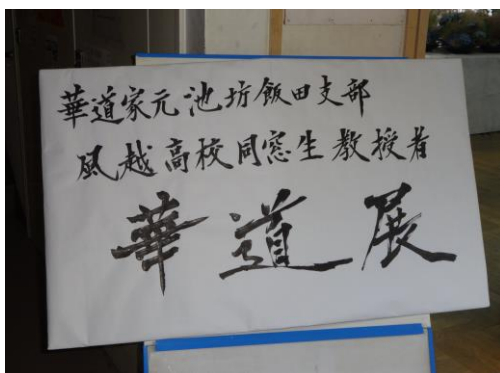 華道家元池坊飯田支部
風越高校同窓生教授者
華道展